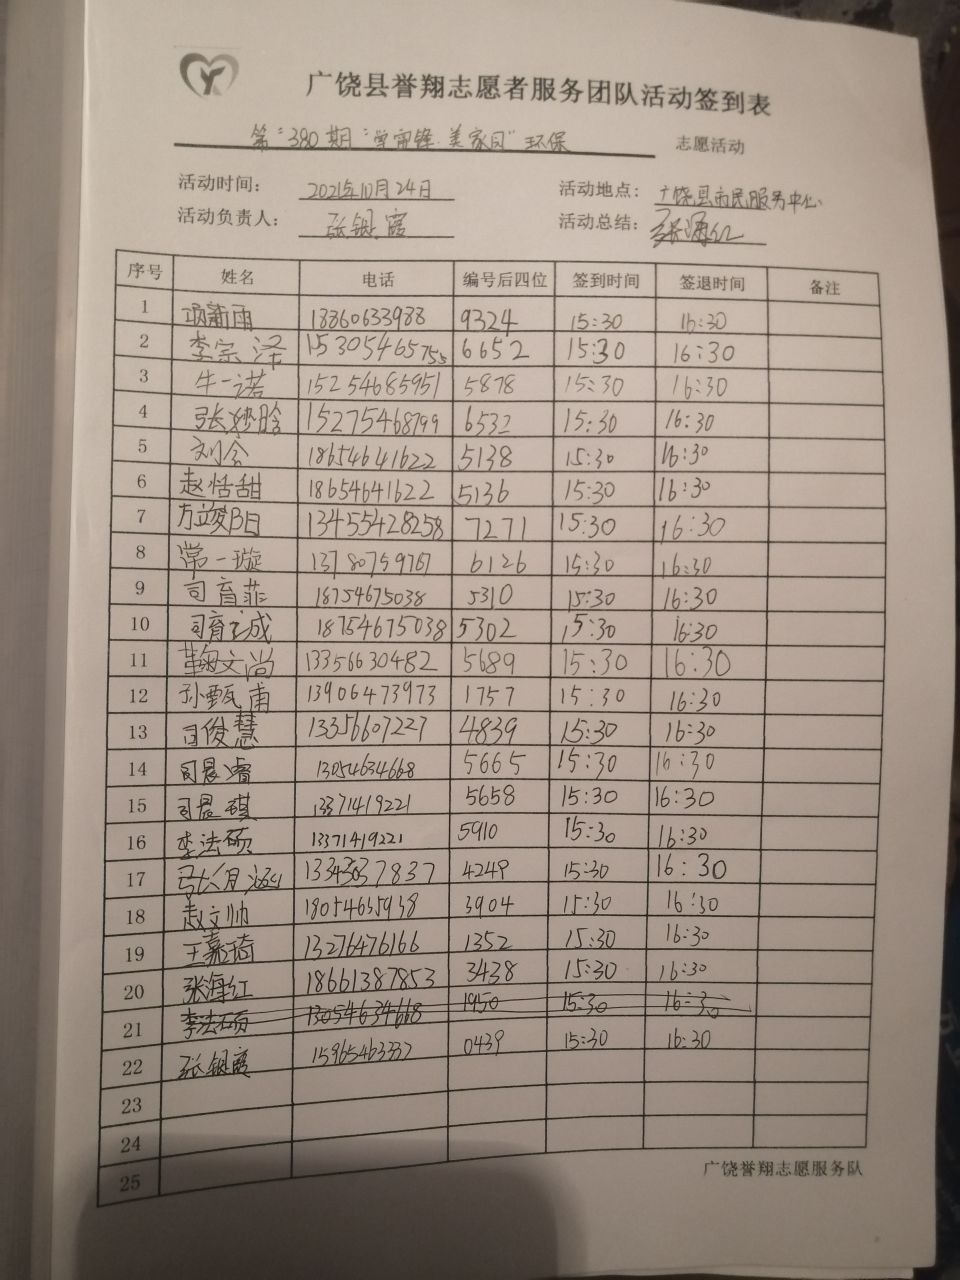 广饶县誉翔志愿者服务团队活动签到表
第"380期"学雷锋·美家园"环保 志愿活动
活动时间: 2021年10月24日 活动地点: 广饶县市民服务中心
活动负责人: 张银霞 活动总结: 张海红
序号 姓名 电话 编号后四位 签到时间 签退时间 备注
1 雨 18860633988 9324 15:30 16:30
2 李宗泽 15305465755 6652 15:30 16:30
3 牛一诺 15254685951 5878 15:30 16:30
4 张 15275468799 6532 15:30 16:30
5 刘会 18654641622 5138 15:30 16:30
6 赵恬甜 18654641622 5136 15:30 16:30
7 13455428258 7271 15:30 16:30
8 常一璇 13780759767 6126 15:30 16:30
9 司育菲 18754675038 5310 15:30 16:30
10 司育成 18754675038 5302 15:30 16:30
11 文尚 13356630482 5689 15:30 16:30
12 孙甄甫 13906473973 1757 15:30 16:30
13 司俊慧 13356607227 4839 15:30 16:30
14 司晨睿 13054634668 5665 15:30 16:30
15 司晨琪 13371419221 5658 15:30 16:30
16 李法硕 13371419221 5910 15:30 16:30
17 张月涵 7837 4249 15:30 16:30
18 赵文帅 18054635938 3904 15:30 16:30
19 王嘉琦 13276476166 1352 15:30 16:30
20 张海红 18661387853 3438 15:30 16:30
21 李法硕 13054634668 1950 15:30 16:30
22 张银霞 15965463332 0439 15:30 16:30
23
24
25
广饶誉翔志愿服务队